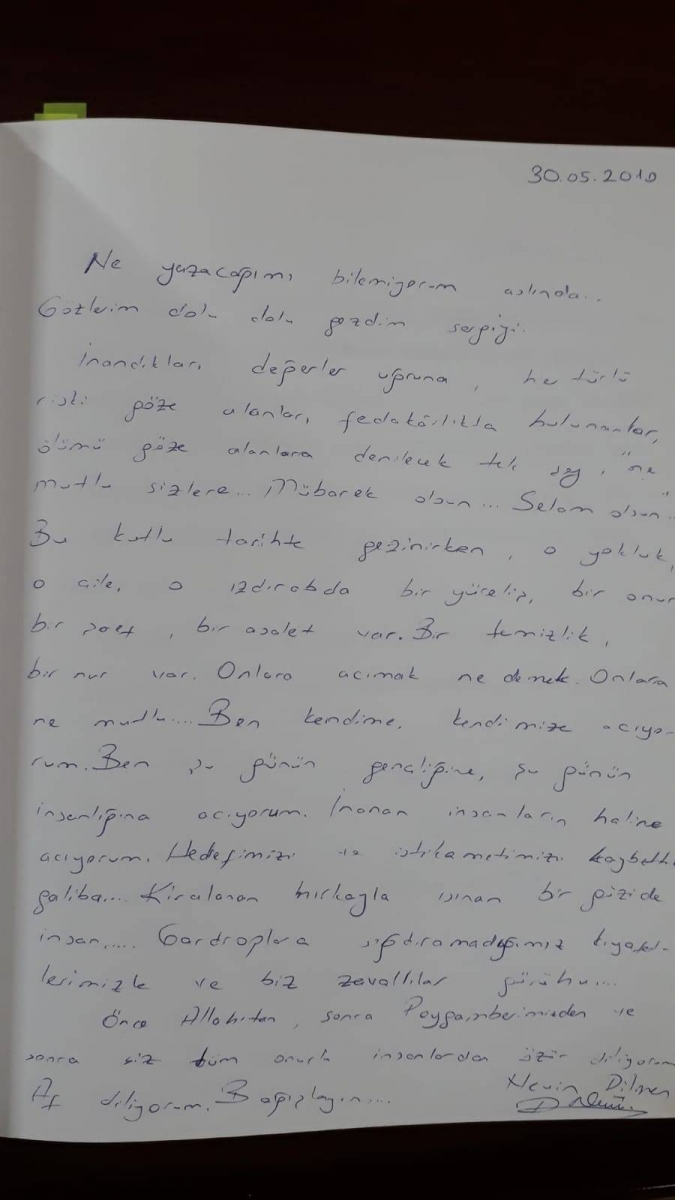 30.05.2010
Ne yazacağımı bilemiyorum aslında...
Gözlerim dolu dolu gezdim sergiyi.
İnandıkları değerler uğruna, her türlü
riski göze alanlar, fedakârlıkta bulunanlar,
ölümü göze alanlara denilecek tek şey, "ne
mutlu sizlere... Mübarek olsun... Selam olsun..."
Bu kutlu tarihte gezinirken, o yokluk,
o çile, o ızdırabda bir yücelik, bir onur
bir , bir asalet var. Bir temizlik,
bir nur var. Onlara acımak ne demek. Onlara
ne mutlu.... Ben kendime, kendimize acıyo-
rum. Ben şu günün gençliğine, şu günün
insanlığına acıyorum. İnanan insanların haline
acıyorum. Hedefimizi ve istikametimizi kaybettik
galiba.... Kiralanan hırkayla ısınan bir de
insan,.... Gardroplara sığdıramadığımız kıyafet-
lerimizle ve biz zavallılar gürûhu....
Önce Allah'tan, sonra Peygamberimizden ve
sonra siz tüm onurlu insanlardan özür diliyorum
Af diliyorum. Bağışlayın....
Nevin Dilmen